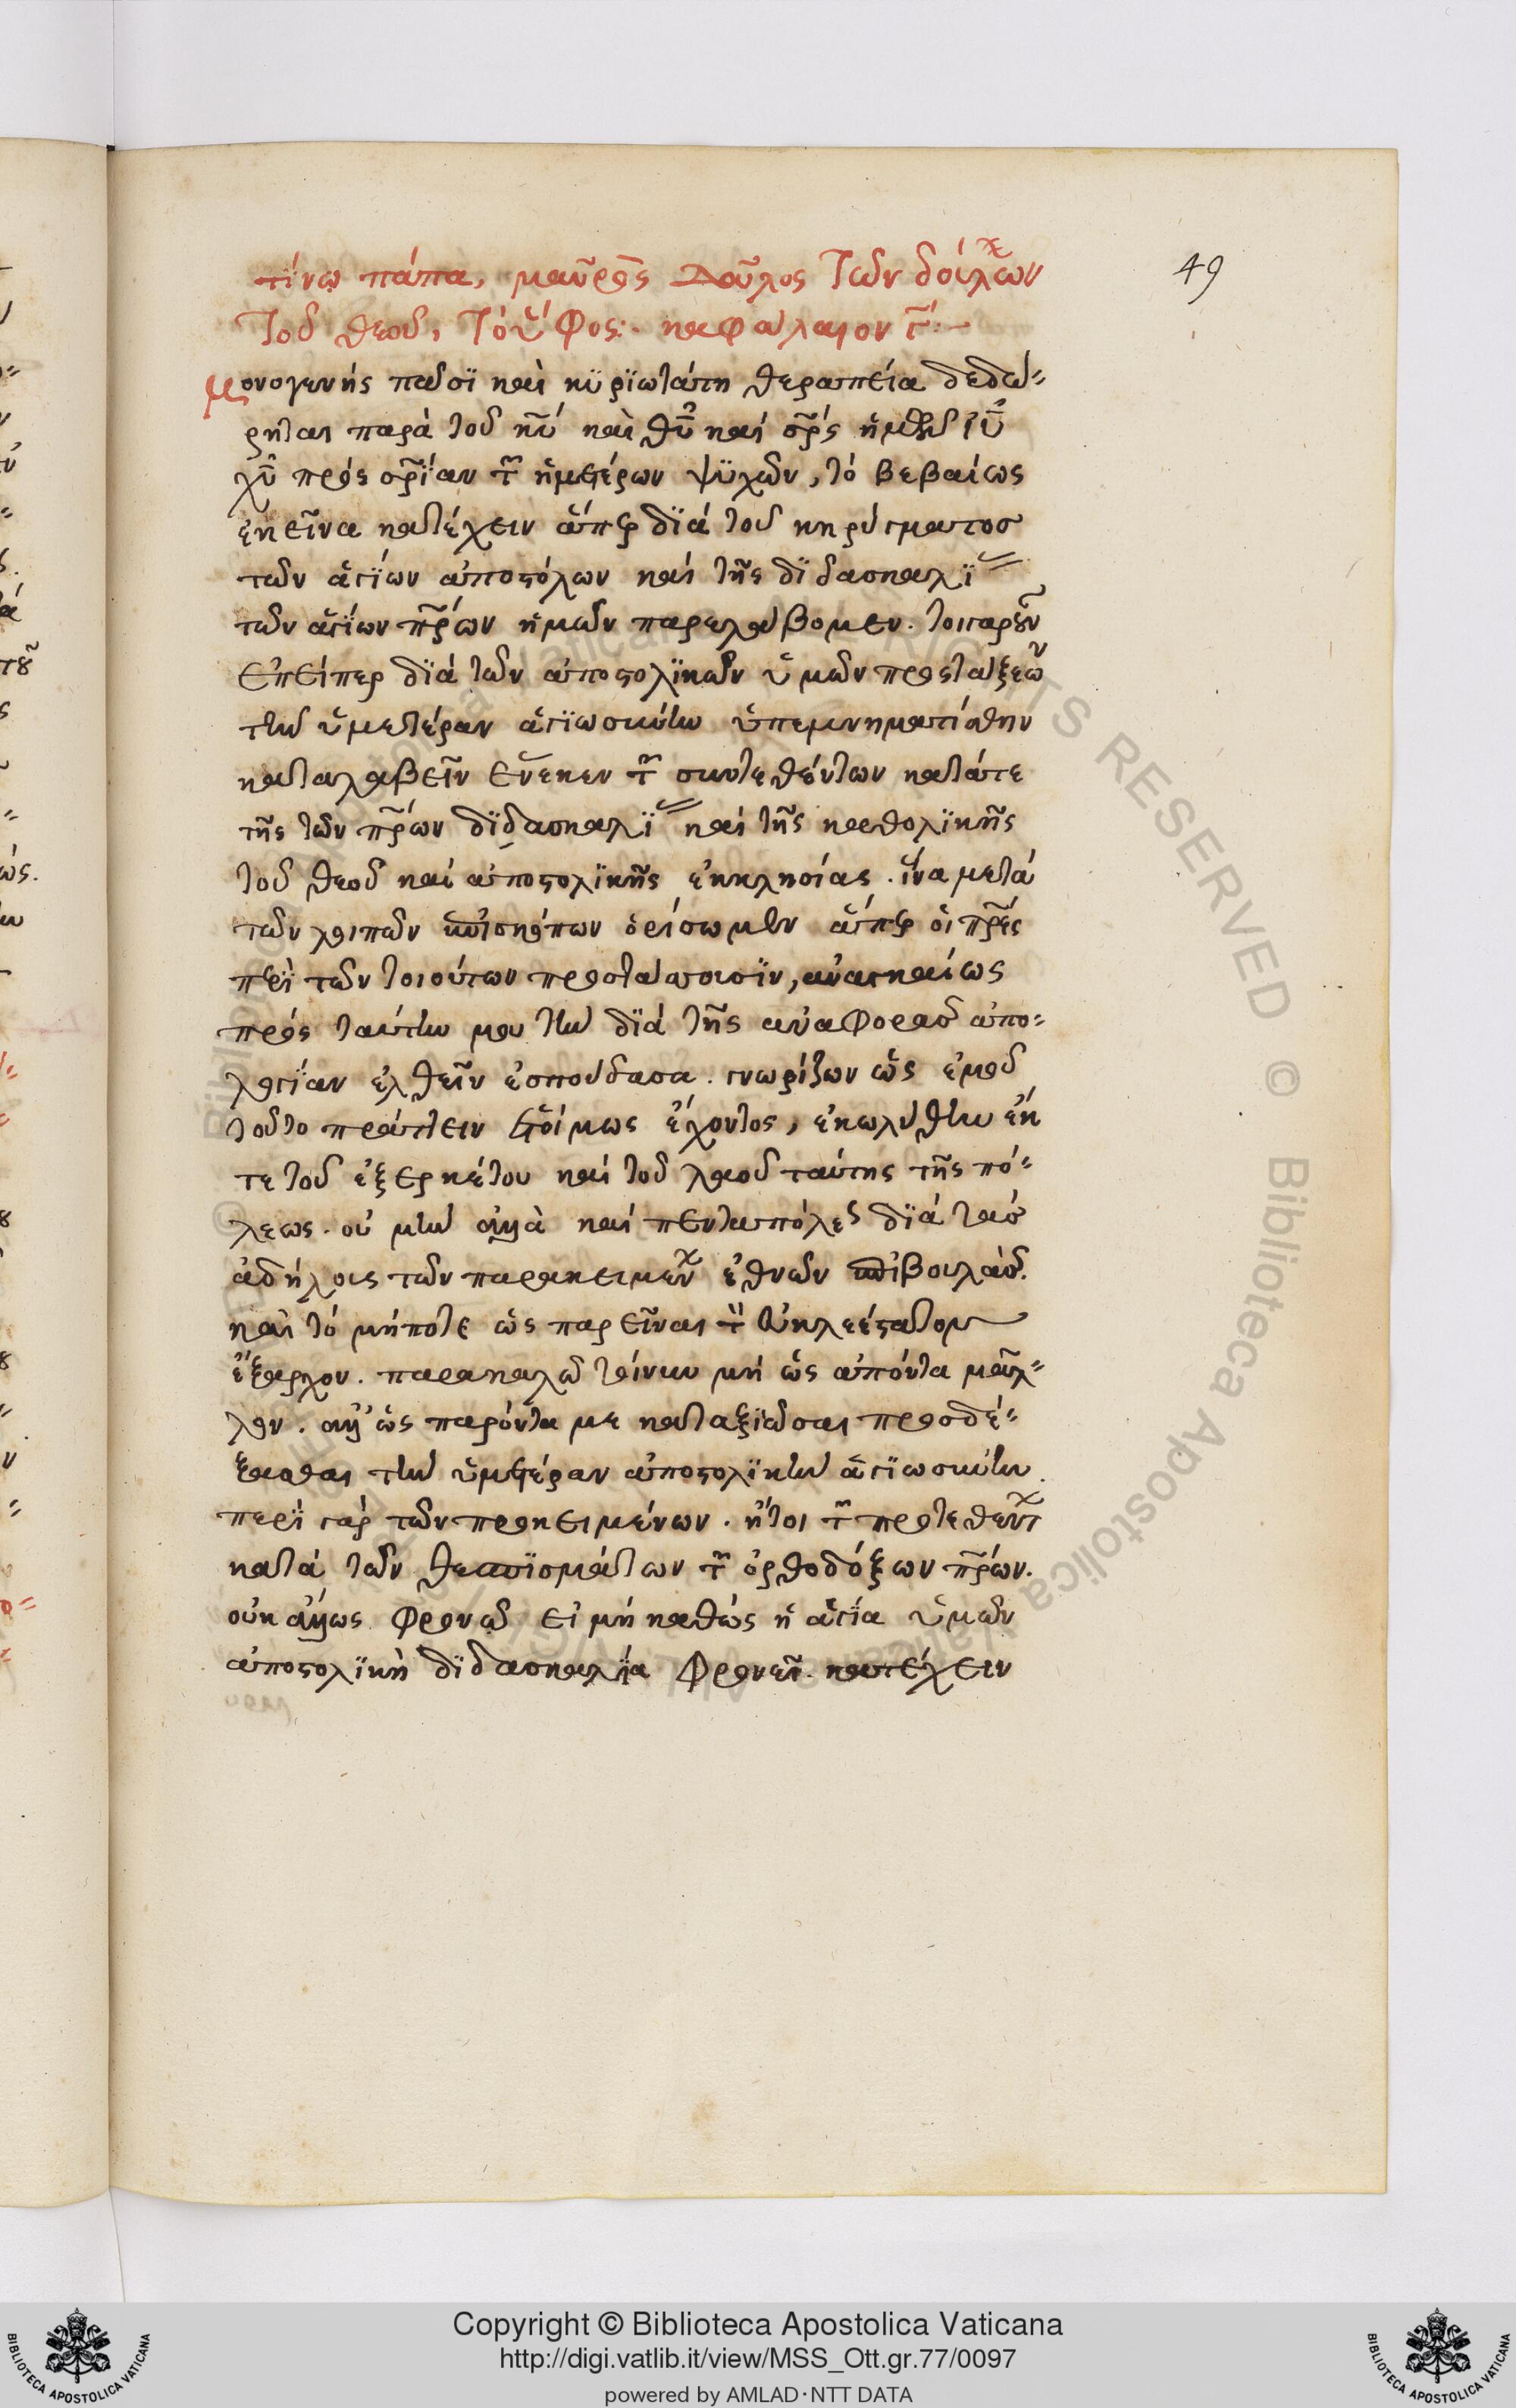 49
τίνω πάπα, μαῦρος Δοῦλος Τῶν δούλων
Τοῦ θεοῦ, Τὸ ὕφος:· κεφάλαιον γ̄:—
μονογενής πᾶσϊ καὶ κϋρϊωτάτη θεραπεία δεδώ=
ρηται παρὰ τοῦ κῡ καὶ θῡ καὶ σρ̄ς ἡμῶν ῑῡ
χῡ πρὸς σρ̄ίαν τ̄ ἡμετέρων ψϋχῶν, τὸ βεβαίως
ἐκεῖνα κατέχειν ἅπερ δϊὰ τοῦ κηρύγματοσ
τῶν ἁγϊων ἀποστόλων καὶ τῆς δϊδασκαλϊ
τῶν ἁγϊων πρ̄ων ἡμῶν παρελάβομεν. τοιγαροῦν
ἐπείπερ δϊὰ τῶν ἀποστολϊκῶν ὑμῶν προστάξεων
τὴν ὑμετέραν ἁγϊωσύνην ὑπεμνηματίσθην
καταλαβεῖν ἕνεκεν τ̄ συντεθέντων κατάτε
τῆς τῶν πρ̄ων δϊδασκαλϊ καὶ τῆς καθολϊκῆς
τοῦ θεοῦ καὶ ἀποστολϊκῆς ἐκκλησίας. ἵνα μετὰ
τῶν λοιπῶν ἐπισκόπων ὁρίσωμεν ἅπερ οἱ πρ̄ες
περὶ τῶν τοιούτων προστάττουσϊν, ἀναγκαίως
πρὸς ταύτην μου τὴν δϊὰ τῆς ἀναφορᾶς ἀπο=
λογίαν ἐλθεῖν ἐσπούδασα. γνωρίζων ὡς ἐμοῦ
τοῦτο πράττειν ἑτοίμως ἔχοντος, ἐκωλύθην ἔκ
τε τοῦ ἐξερκέτου καὶ τοῦ λαοῦ ταύτης τῆς πό=
λεως. οὐ μὴν ἀλλὰ καὶ πενταπόλες διὰ τὰσ
ἀδήλους τῶν παρακειμένων ἐθνῶν ἐπιβουλάσ.
καὶ τὸ μήποτε ὡς παρεῖναι τ̄ εὐκλεέστατον
ἔξαρχον. παρακαλῶ τοίνυν μὴ ὡς ἀπόντα μᾶλ=
λον. ἀλλ' ὡς παρόντα με καταξϊῶσαι προσδέ=
ξασθαι τὴν ὑμετέραν ἀποστολϊκὴν ἁγϊωσύνην.
περὶ γὰρ τῶν προκειμένων. ἤτοι τ̄ προτεθέντ
κατὰ τῶν θεσπϊσμάτων τ̄ ὀρθοδόξων πρ̄ων.
οὐκ ἄλλως φρονῶ εἰ μὴ καθὼς ἡ ἁγία ὑμῶν
ἀποστολϊκὴ δϊδασκαλϊα φρονεῖ. κατέχειν
Copyright © Biblioteca Apostolica Vaticana
http://digi.vatlib.it/view/MSS_Ott.gr.77/0097
powered by AMLAD·NTT DATA